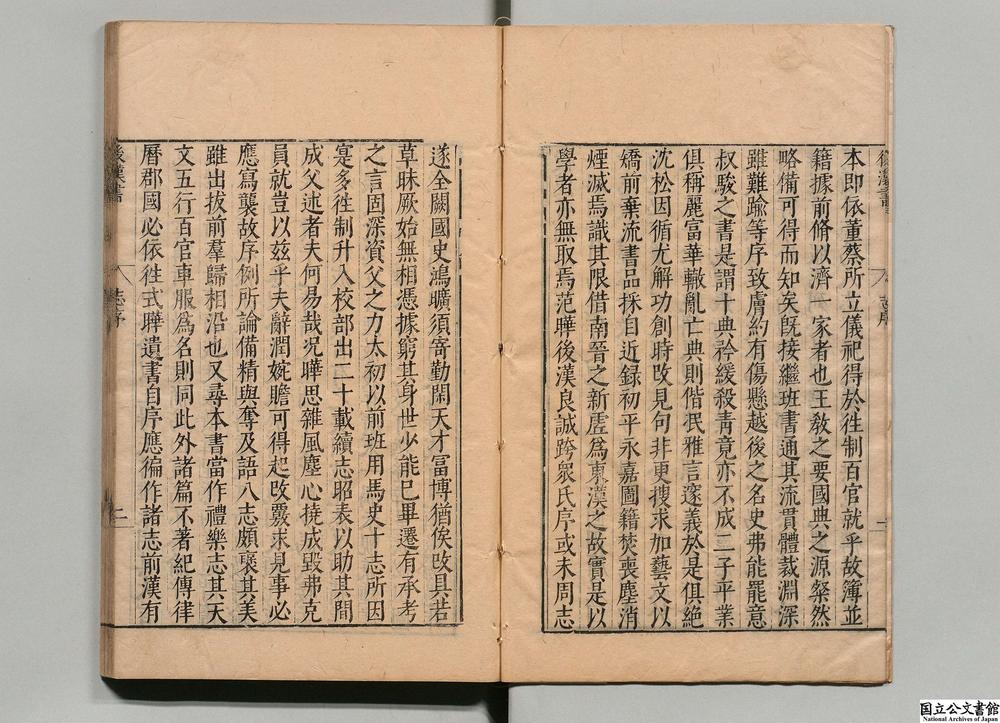 本即依董蔡所立儀祀得於徃制百官就乎故簿並
籍據前脩以濟一家者也王教之要國典之源粲然
略備可得而知矣既接繼班書通其流貫體裁淵深
雖難踰等序致膚約有傷懸越後之名史弗能罷意
叔駿之書是謂十典矜緩殺青竟亦不成二子平業
俱稱麗富華轍亂亡典則偕泯雅言邃義於是俱絶
沈松因循尤解功創時改見句非更搜求加藝文以
矯前棄流書品採自近録初平永嘉圖籍焚喪塵消
煙滅焉識其限借南晉之新虛爲東漢之故實是以
學者亦無取焉范曄後漢良誠跨衆氏序或未周志
遂全闕國史鴻曠須寄勤閑天才冨博猶俟改具若
草昧厥始無相憑據窮其身世少能已畢遷有承考
之言固深資父之力太初以前班用馬史十志所因
寔多徃制升入校部出二十載續志昭表以助其間
成父述者夫何易哉况曄思雜風塵心撓成毀弗克
員就豈以兹乎夫辭潤婉贍可得起改覈求見事必
應寫襲故序例所論備精與奪及語八志頗褒其美
雖出拔前羣歸相沿也又尋本書當作禮樂志其天
文五行百官車服爲名則同此外諸篇不著紀傳律
曆郡國必依徃式曄遺書自序應徧作諸志前漢有
後漢書
志序
二
国立公文書館
National Archives of Japan